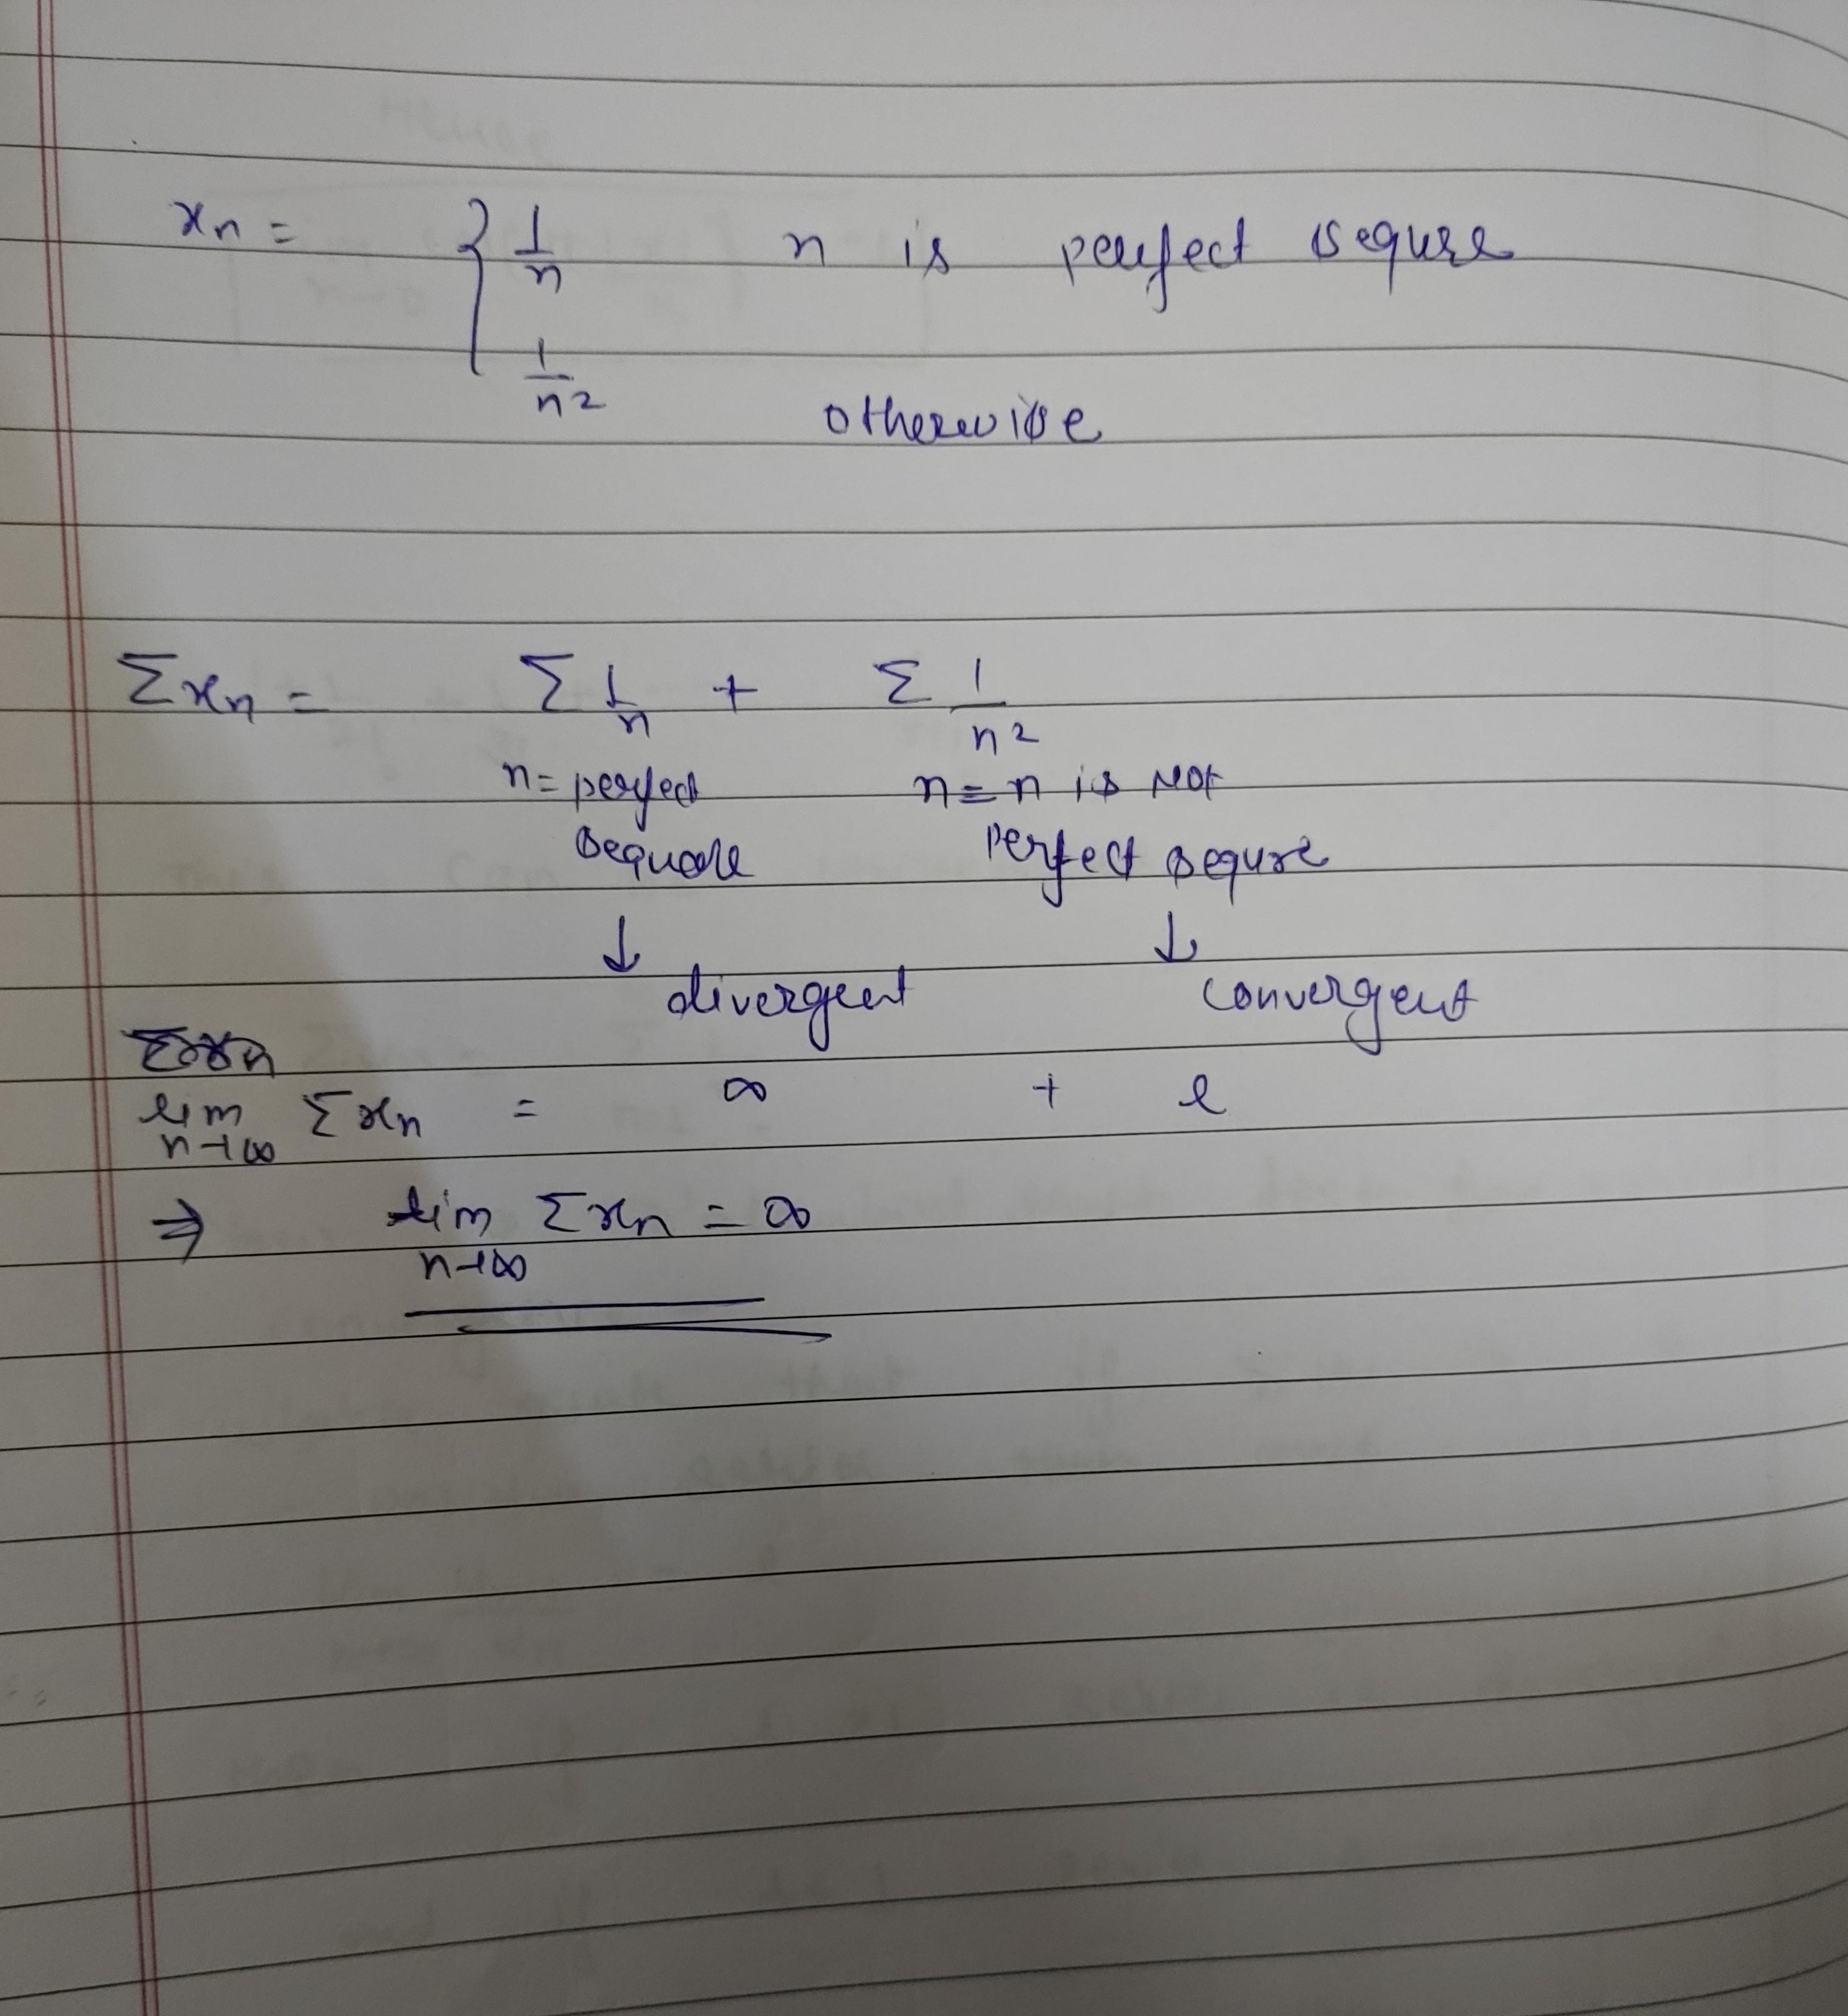 xn = { 1/n n is perfect sequre
1/n2 otherewise
Σxn = Σ 1/n + Σ 1/n2
n = perfect n = n is Not
sequare perfect sequre
↓ ↓
divergent convergent
lim n→∞ Σxn = ∞ + l
⇒ lim n→∞ Σxn = ∞